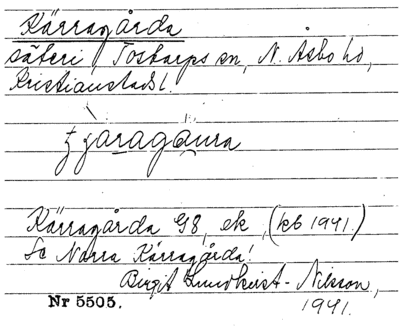 Kärragårda
säteri Tostarps sn, N. Åsbo hd,
Kristianstads l.
Kärragårda G8, ek, (kb 1941.)
Se Norra Kärragårda!
Birgit Lundkvist-Nilsson,
Nr 5505. 1941.